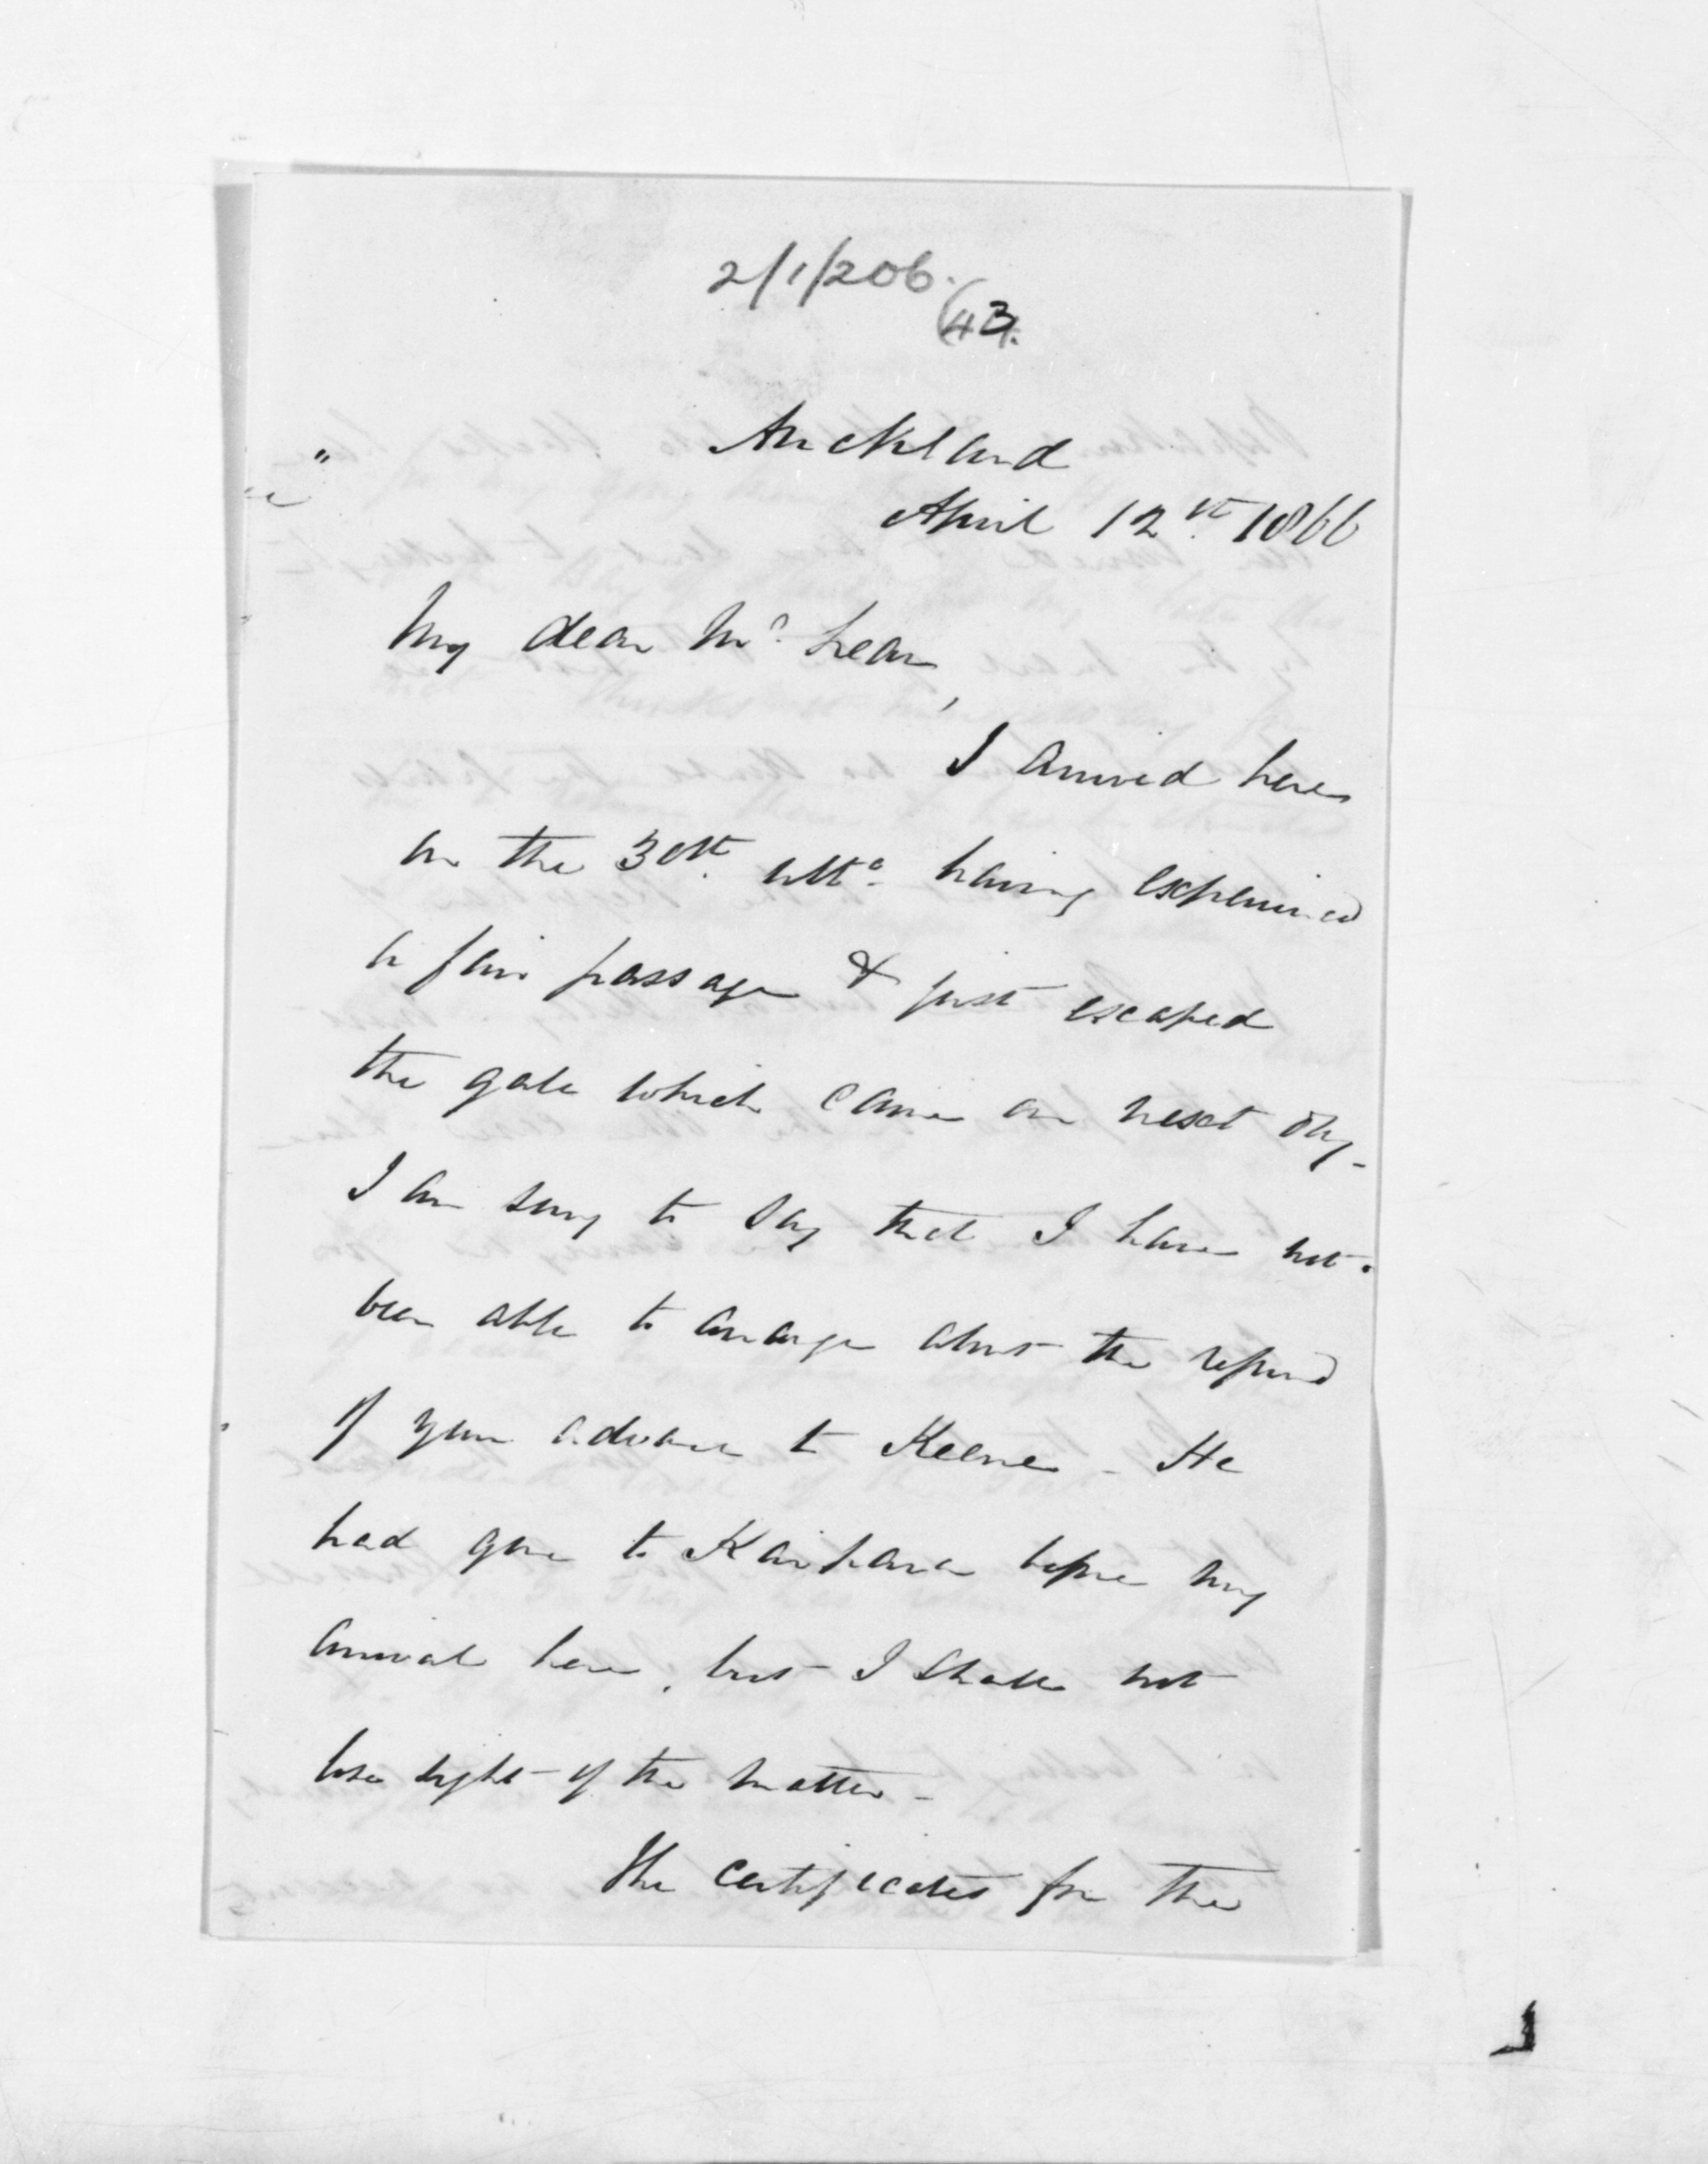 2/1/206.
(43.
Auckland
April 12th. 1866
My dear Mc.Lean,
I arrived here
on the 30th. ulto. having experienced
a fair passage & just escaped
the gale which came on next day -
I am sorry to say that I have not
been able to arrange about the refund
of your advance to Keene - He
had gone to Kaipara before my
arrival here, but I shall not
lose sight of the matter -
The certificates for the